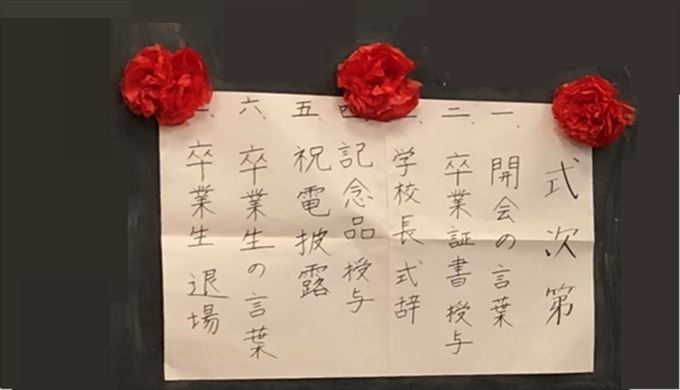 式次第
一、開会の言葉
二、卒業証書授与
三、学校長式辞
四、記念品授与
五、祝電披露
六、卒業生の言葉
卒業生退場